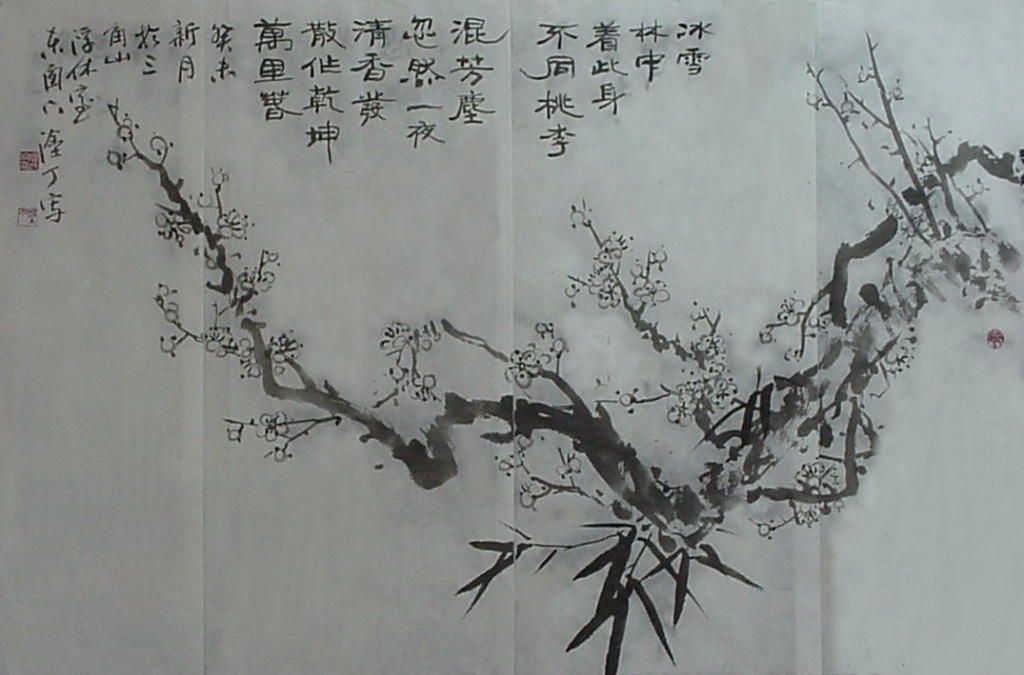 冰雪
林中
着此身
不同桃李
混芳塵
忽然一夜
清香發
散作乾坤
萬里春
癸未
新月
於三
角山
浮休室
东窗下
塗丁写